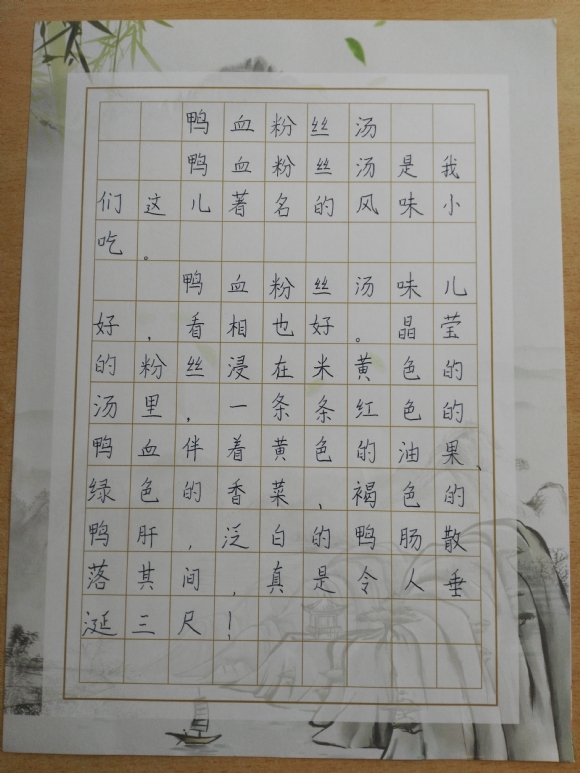 鸭血粉丝汤
鸭血粉丝汤是我
们这儿著名的风味小
吃。
鸭血粉丝汤味儿
好，看相也好。晶莹
的粉丝浸在米黄色的
汤里，一条条红色的
鸭血伴着黄色的油果、
绿色的香菜、褐色的
鸭肝，泛白的鸭肠散
落其间，真是令人垂
涎三尺！